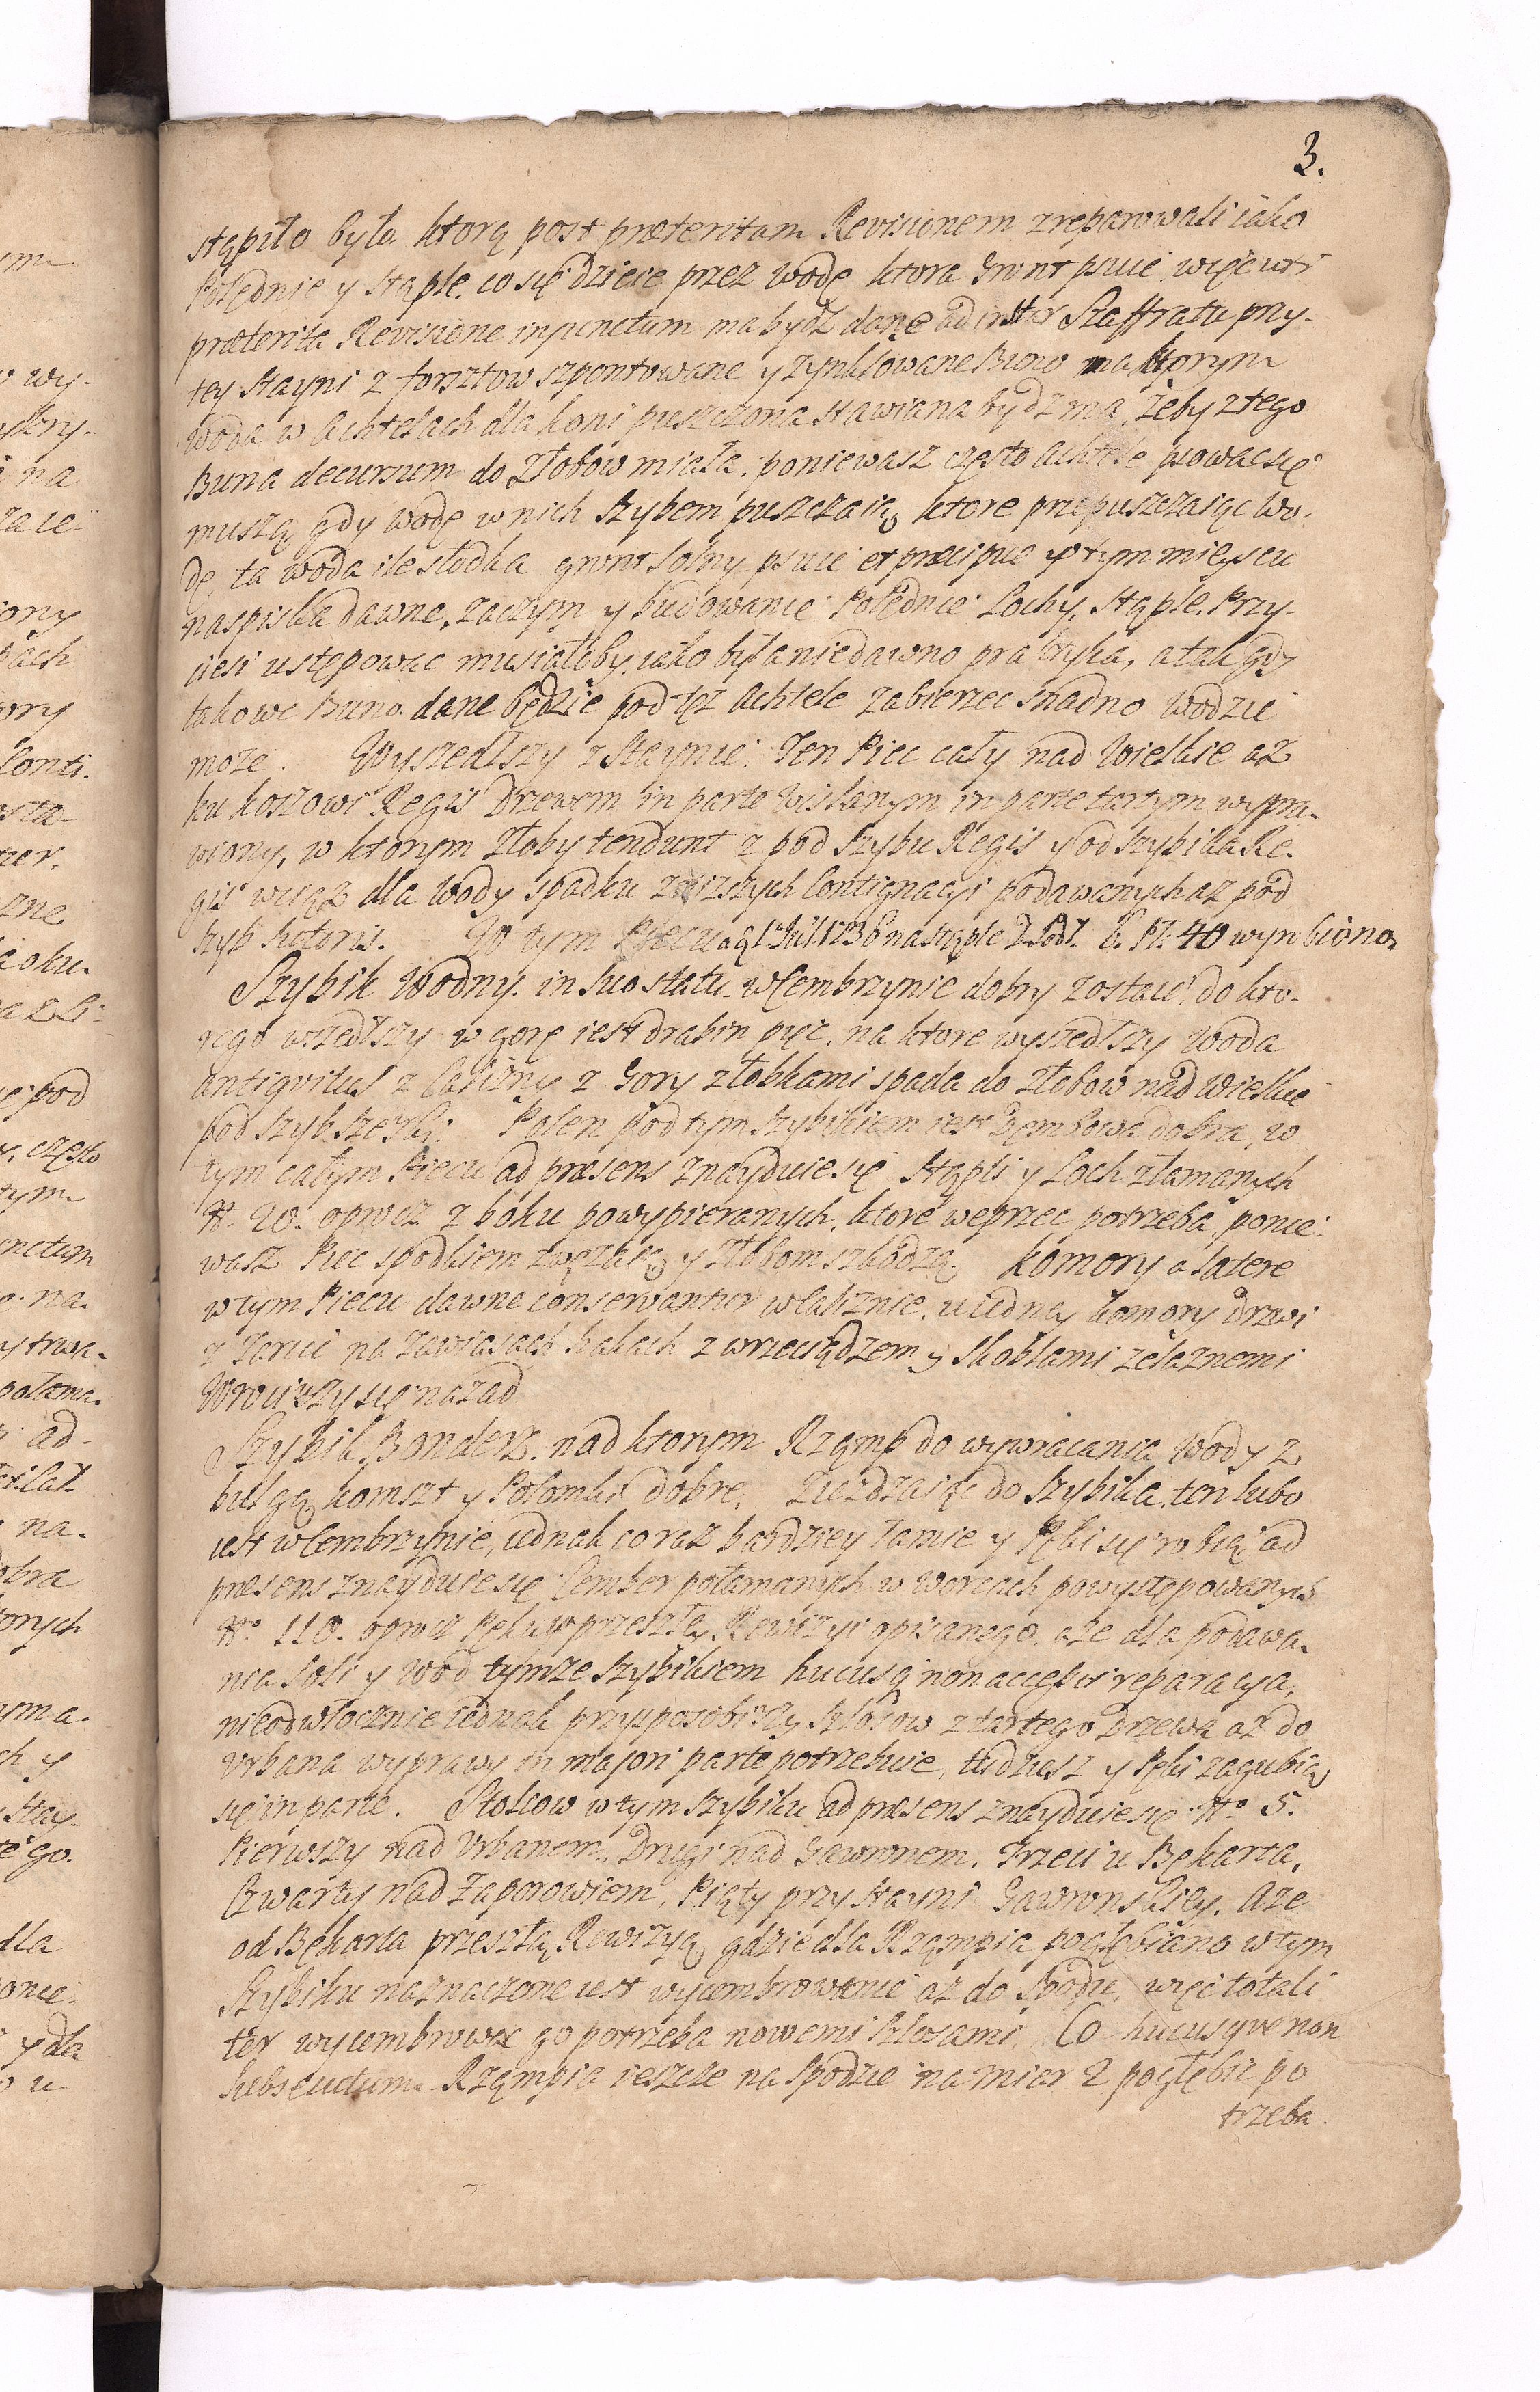 3.
stąpiło było. ktorą post præteritam Revisionem zreparowali iako
Polędnie y Stąple. co się dzieie przez wodę ktora Grunt psuie, więc uti
præterita Revisione injunctum ma bydź dane ad instar Szaffratu przy-
tey Stayni z forsztow szpontowane y zynklowane Buno na ktorym
woda w Achtelach dla koni puszczona stawiana bydz ma, żeby z tego
Buna decursum do Złobow miała: poniewasz często Achtele psowac się
muszą, gdy wodę w nich Szybem puszczaią, ktore przepuszczaiąc Wo-
dę, ta woda ile słodka grunt solny psuie et præcipue w tym mieyscu
naspiska dawne, zaczym y budowanie Polędnie Lochy, Stąple. Przy-
ciesi ustępowac musiałoby, iako była niedawno praktyka, a tak gdy
takowe Buno dane będzie pod też Achtele zabierzec snadno wodzie
może. Wyszedłszy z Staynie. Ten Piec cały nad Wielkie aż
ku koszowi Regis Drzewem in parte Wislanym in parte tartym wypra-
wiony, w ktorym Złoby tendunt z pod Szybu Regis y od Szybika Re-
gis wciąż dla Wody spadku z wyższych Contignacyi podawanych aż pod
Szyb Sctoris. W tym Piecu a q 1 Juli 1738 na stąple 2 Łodz. E. 17. 40 wyrobiono
Szybik Wodny. in suo statu w Cembrzynie dobry zostaie. do kto-
rego wszedłszy w gorę iest drabin pięc, na ktore wyszedłszy Woda
antiqvitus z Calizny z Gory złobkami spada do Złobow nad Wielkie
pod Szyb. Palen pod tym Szybikiem iest Dembowa dobra, w
tym całym Piecu ad præsens znayduie się Stąpli y Loch złamanych
N. 20. oprocz z boku powypieranych, ktore weprzec potrzeba, ponie-
wasz Piec spodkiem zwęzaią y Złobom szkodzą. Komory a latere
w tym Piecu dawne conservantur w Calisznie, u iedney komory Drzwi
z Tarcic na zawiasach hakach z wrzeciądzem y Skoblami zelaznemi
Wrociwszy się nazad
Szybik. Bonders. nad ktorym Rząmp do wywracania Wody z
bulgą, komszt y Polomki dobre. Ziezdzaiąc do Szybika, ten lubo
iest w Cembrzynie, iednak co raz bardziey łamie y Pęki się robią ad
præsens znayduie się Cember połamanych w Worcach powystępowanych
N. 110. oprocz Pęku w przeszłey Rewizyi opisanego, a że dla podawa-
nia soli y Wod tymze Szybikiem hucusq non accessit reparacya,
nieodwłocznie iednak przysposobiwszy Szlosow z tartego Drzewa aż do
Urbana wyprawy in majori parte potrzebuie, tudziesz y Pęki zagubią
się in parte. Stolcow w tym Szybiku ad præsens znayduie się N. 5.
Pierwszy nad Urbanem. Drugi nad Gawronem. Trzeci u Bękarta.
Czwarty nad Zaporowiem, Piąty przy Stayni Gawronskiey. A że
od Bękarta przeszłą Rewizyą gdzie dla Rząmpia pogłębiano w tym
Szybiku naznaczone iest wycembrowanie aż do Spodu, więc totali
ter wycembrowac go potrzeba nowemi Szlosami. Co hucusqve non
subsecutum. Rząmpia ieszcze na Spodzie na miar 2 pogłębic po
trzeba.